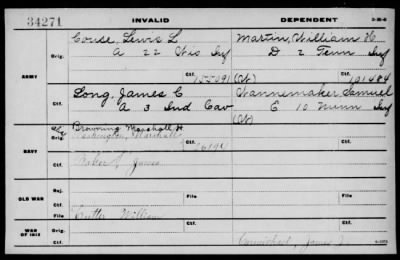 34271
INVALID
DEPENDENT
3-II-4
Couse, Lewis L
A 22 Wis Inf
Orig.
155091
Martin, William H
D 2 Tenn Inf
(W)
191484
ARMY
Long, James C
A 3 Ind Cav
Ctf.
Wannemaker Samuel
E 10 Minn Inf
(W)
Browning Marshall H.
Washington, Marshall
Orig.
NAVY
Baker, James
Ctf.
Rej.
File
File
OLD WAR
Ctf.
Cutter William
Orig.
WAR OF 1812
Ctf.
Carmichael, James